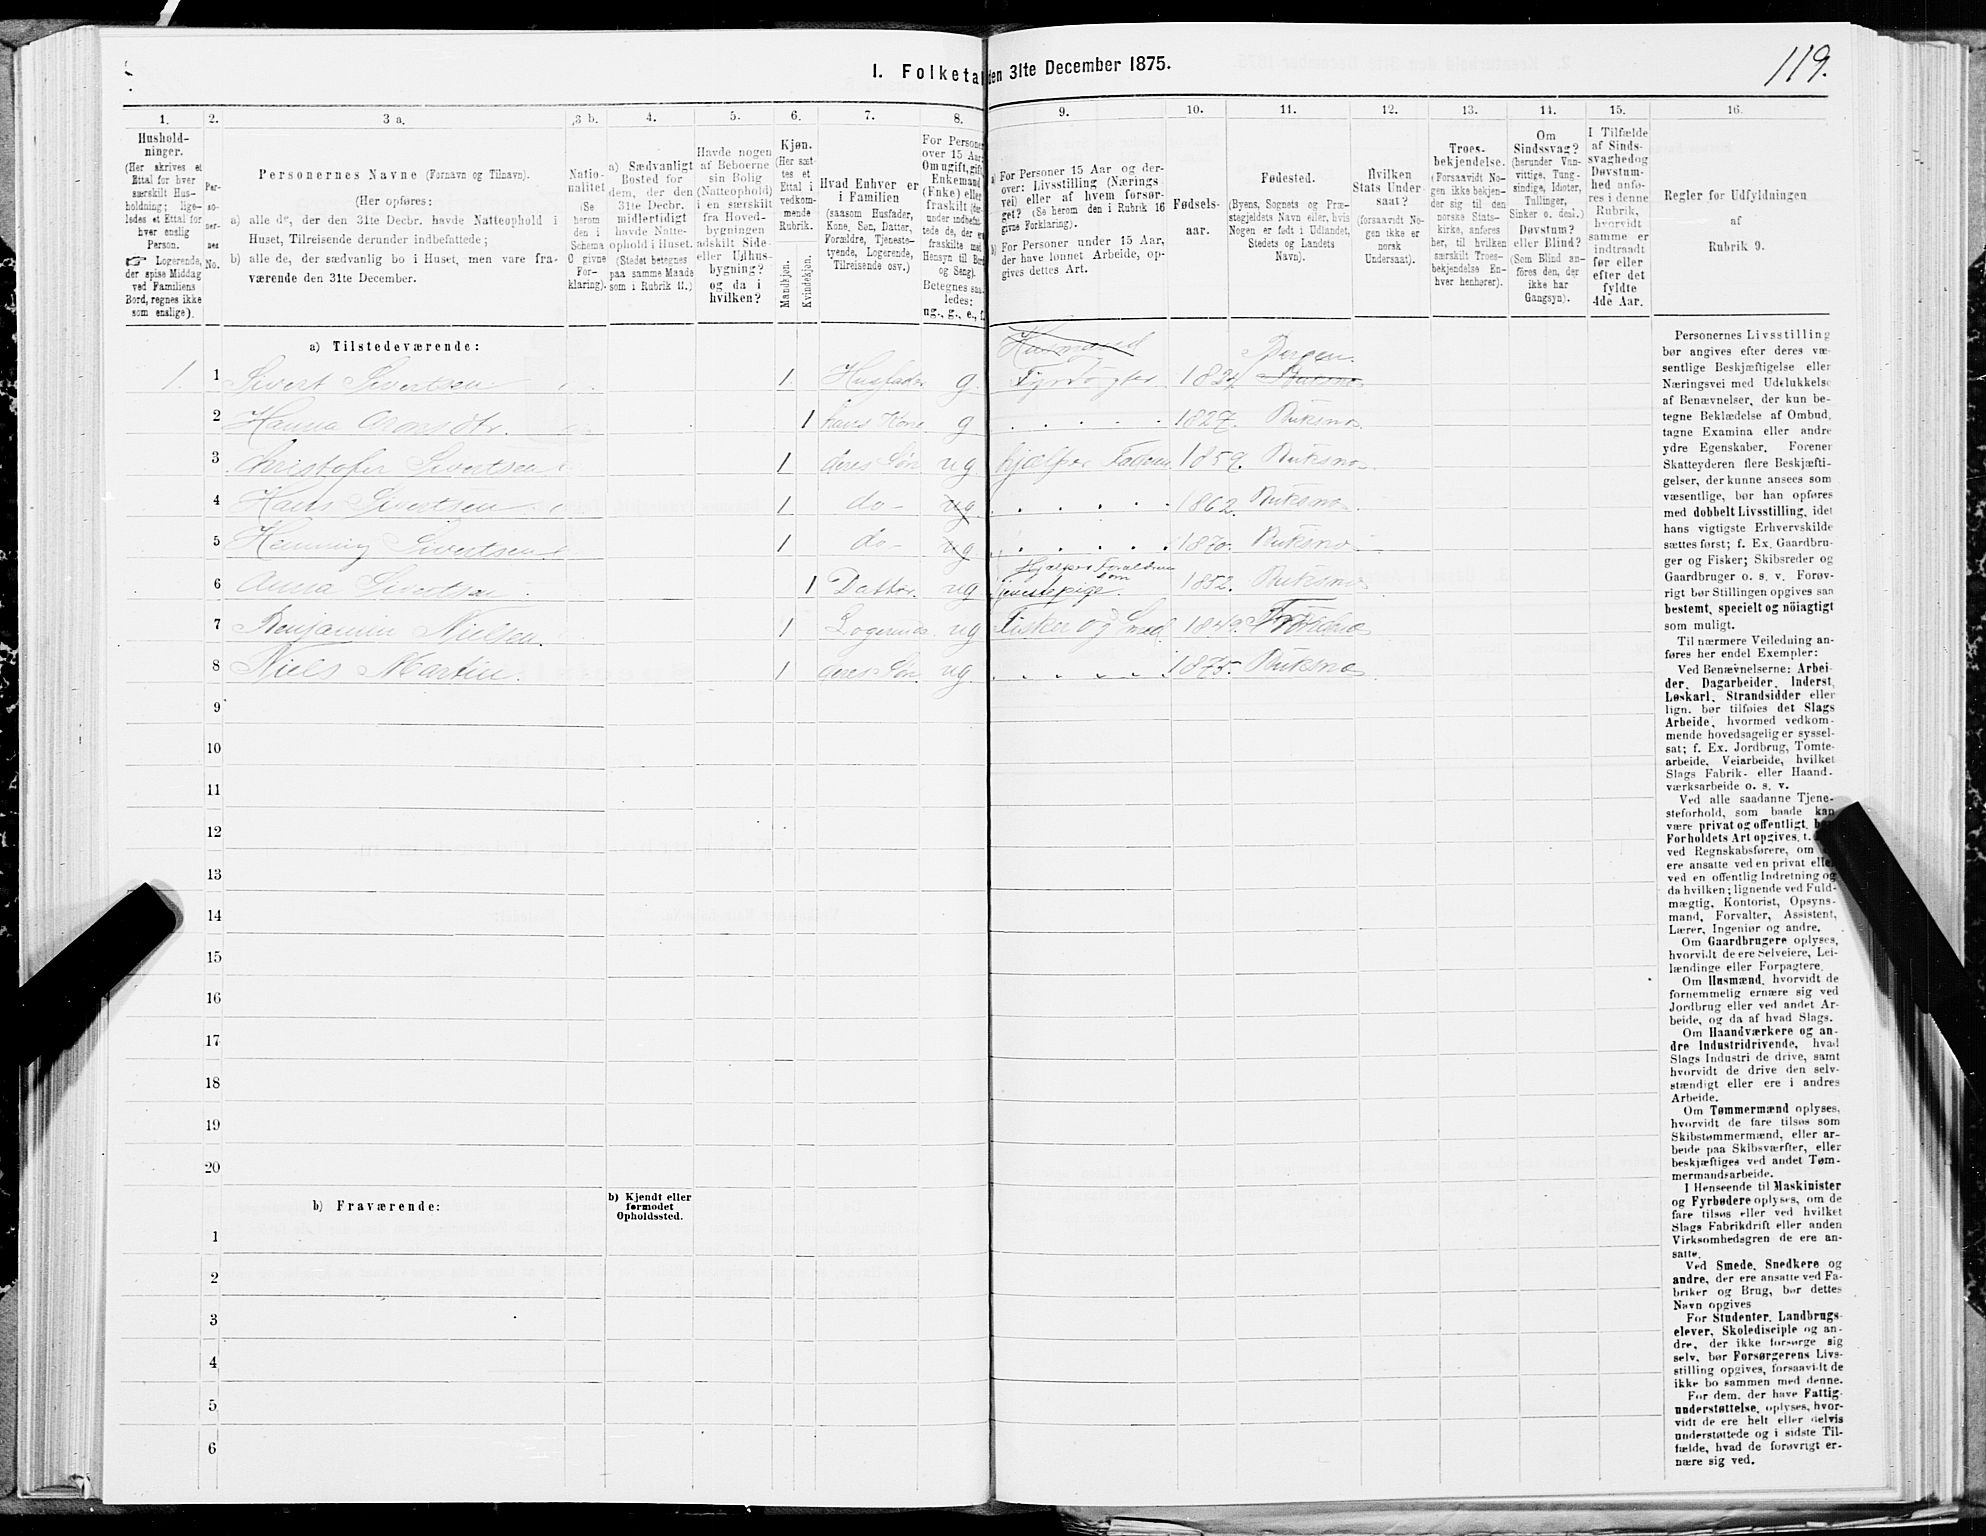 119.
I. Folketal den 31te December 1875.
1. 2. 3 a. 3 b. 4. 5. 6. 7. 8. 9. 10. 11. 12. 13. 14. 15. 16.
Hushold-
ninger.
(Her skrives et
Ettal for hver
særskilt Hus-
holdning; lige-
ledes et Ettal for
hver enslig
Person.
☞ Logerende,
der spise Middag
ved Familiens
Bord, regnes ikke
som enslige).
Per-
so-
ner-
nes
No.
Personernes Navne (Fornavn og Tilnavn).
(Her opføres:
a) alle de, der den 31te Decbr. havde Natteophold i
Huset, Tilreisende derunder indbefattede;
b) alle de, der sædvanlig bo i Huset, men vare fra-
værende den 31te December.
Natio-
nalitet
(Se
herom
den i
Schema
O givne
For-
klaring).
a) Sædvanligt
Bosted for
dem, der den
31te Decbr.
midlertidigt
havde Natte-
ophold i Huset.
(Stedet betegnes
paa samme Maade
som i Rubrik 11.)
Havde nogen
af Beboerne
sin Bolig
(Natteophold)
i en særskilt
fra Hoved-
bygningen
adskilt Side-
eller Udhus-
bygning?
og da i
hvilken?
Kjøn.
(Her sæt-
tes et
Ettal i
vedkom-
mende
Rubrik.
Mandkjøn.
Kvindekjøn.
Hvad Enhver er
i Familien
(saasom Husfader,
Kone, Søn, Datter,
Forældre, Tjeneste-
tyende, Logerende,
Tilreisende osv.)
For Persone
over 15 Aar:
Om ugift, gift,
Enkemand
(Enke) eller
fraskilt (der-
under indbefat-
tede de, der er
fraskilte med
Hensyn til Bord
og Seng).
Betegnes saa-
ledes:
ug., g., e., f.
a) For Personer 15 Aar og der-
over: Livsstilling (Nærings-
vei) eller af hvem forsør-
get? (Se herom den i Rubrik 16
givne Forklaring).
b) For Personer under 15 Aar,
der have lønnet Arbeide, op-
gives dettes Art.
Fødsels-
aar.
Fødested.
(Byens, Sognets og Præ-
stegjeldets Navn eller, hvis
Nogen er født i Udlandet,
Stedets og Landets
Navn).
Hvilken
Stats Under-
saat?
(forsaavidt No-
gen ikke er
norsk
Undersaat).
Troes-
bekjendelse.
(Forsaavidt No-
gen ikke bekjen-
der sig til den
norske Stats-
kirke, anføres
her, til hvilken
særskilt Troes-
bekjendelse En-
hver henhører).
Om
Sindssvag?
(herunder Van-
vittige, Tung-
sindige, Idioter,
Tullinger,
Sinker o. desl.)
Døvstum?
eller Blind?
(Som Blind an-
føres den, der
ikke har
Gangsyn).
I Tilfælde
af Sinds-
svaghed og
Døvstum-
hed anfø-
res i denne
Rubrik,
hvorvidt
samme er
indtraadt
før eller
efter det
fyldte
4de Aar.
Regler for Udfyldningen
af
Rubrik 9.
a) Tilstedeværende:
Husmand Bergen.
1. 1 Sivert Sivertsen 1 Husfader g. Fyrvogter 1824. Buksnæs
2 Hanna Aronsdtr. 1 hans Kone g 1827. Buksnæs
3 Christofer Sivertsen 1 deres Søn ug hjælper Faderen 1859. Buksnæs
4 Hans Sivertsen 1 do- ug 1862. Buksnæs
5 Henning Sivertsen 1 do- ug 1870. Buksnæs
hjælper Forældrene
som
6 Anna Sivertsen 1 Datter. ug tjenestepige. 1852. Buksnæs
7 Benjamin Nielsen. 1 Logerende ug Fisker og Smed 1849.
8 Niels Martin. 1 deres Søn ug. 1875. Buksnæs
9
10
11
12
13
14
15
16
17
18
19
20
b) Fraværende:
b) Kjendt eller
formodet
Opholdssted.
1
2
3
4
5
6
Personernes Livsstilling
bør angives efter deres væ-
sentlige Beskjæftigelse eller
Næringsvei med Udelukkelse
af Benævnelser, der kun be-
tegne Beklædelse af Ombud,
tagne Examina eller andre
ydre Egenskaber. Forener
Skatteyderen flere Beskjæfti-
gelser, der kunne ansees som
væsentlige, bør han opføres
med dobbelt Livsstilling, idet
hans vigtigste Erhvervskilde
sættes først; f. Ex. Gaardbru-
ger og Fisker; Skibsreder og
Gaardbruger o. s. v. Forøv-
rigt bør Stillingen opgives saa
bestemt, specielt og nöiagtigt
som muligt.
Til nærmere Veiledning an-
føres her endel Exempler:
Ved Benævnelserne: Arbei-
der, Dagarbeider, Inderst,
Løskarl, Strandsidder eller
lign. bør tilføies det Slags
Arbeide, hvormed vedkom-
mende hovedsagelig er syssel-
sat; f. Ex. Jordbrug, Tomte-
arbeide, Veiarbeide, hvilket
Slags Fabrik- eller Haand-
værksarbeide o. s. v.
Ved alle saadanne Tjene-
steforhold, som baade kan
være privat og offentligt, bør
Forholdets Art opgives, t.
ved Regnskabsførere, om
ere ansatte ved en privat eller
ved en offentlig Indretning og
da hvilken; lignende ved Fuld-
mægtig, Kontorist, Opsyns-
mand, Forvalter, Assistent,
Lærer, Ingeniør og andre.
Om Gaardbrugere oplyses,
hvorvidt de ere Selveiere, Lei-
lændinge eller Forpagtere.
Om Husmænd, hvorvidt de
fornemmelig ernære sig ved
Jordbrug eller ved andet Ar-
beide, og da af hvad Slags.
Om Haandværkere og an-
dre Industridrivende, hvad
Slags Industri de drive, samt
hvorvidt de drive den selv-
stændigt eller ere i andres
Arbeide.
Om Tømmermænd oplyses,
hvorvidt de fare tilsøs som
Skibstømmermænd, eller ar-
beide paa Skibsværfter, eller
beskjæftiges ved andet Tøm-
mermandsarbeide.
I Henseende til Maskinister
og Fyrbødere oplyses, om de
fare tilsøs eller ved hvilket
Slags Fabrikdrift eller anden
Virksomhedsgren de ere an-
satte.
Ved Smede, Snedkere og
andre, der ere ansatte ved Fa-
briker og Brug, bør dettes
Navn opgives
For Studenter, Landbrugs-
elever, Skoledisciple og an-
dre, der ikke forsørge sig
selv, bør Forsørgerens Livs-
stilling opgives, forsaavidt de
ikke bo sammen med denne.
For dem, der have Fattig-
understøttelse, oplyses, hvor-
vidt de ere helt eller delvis
understøttede og i sidste Til-
fælde, hvad de forøvrigt er-
nære sig ved.